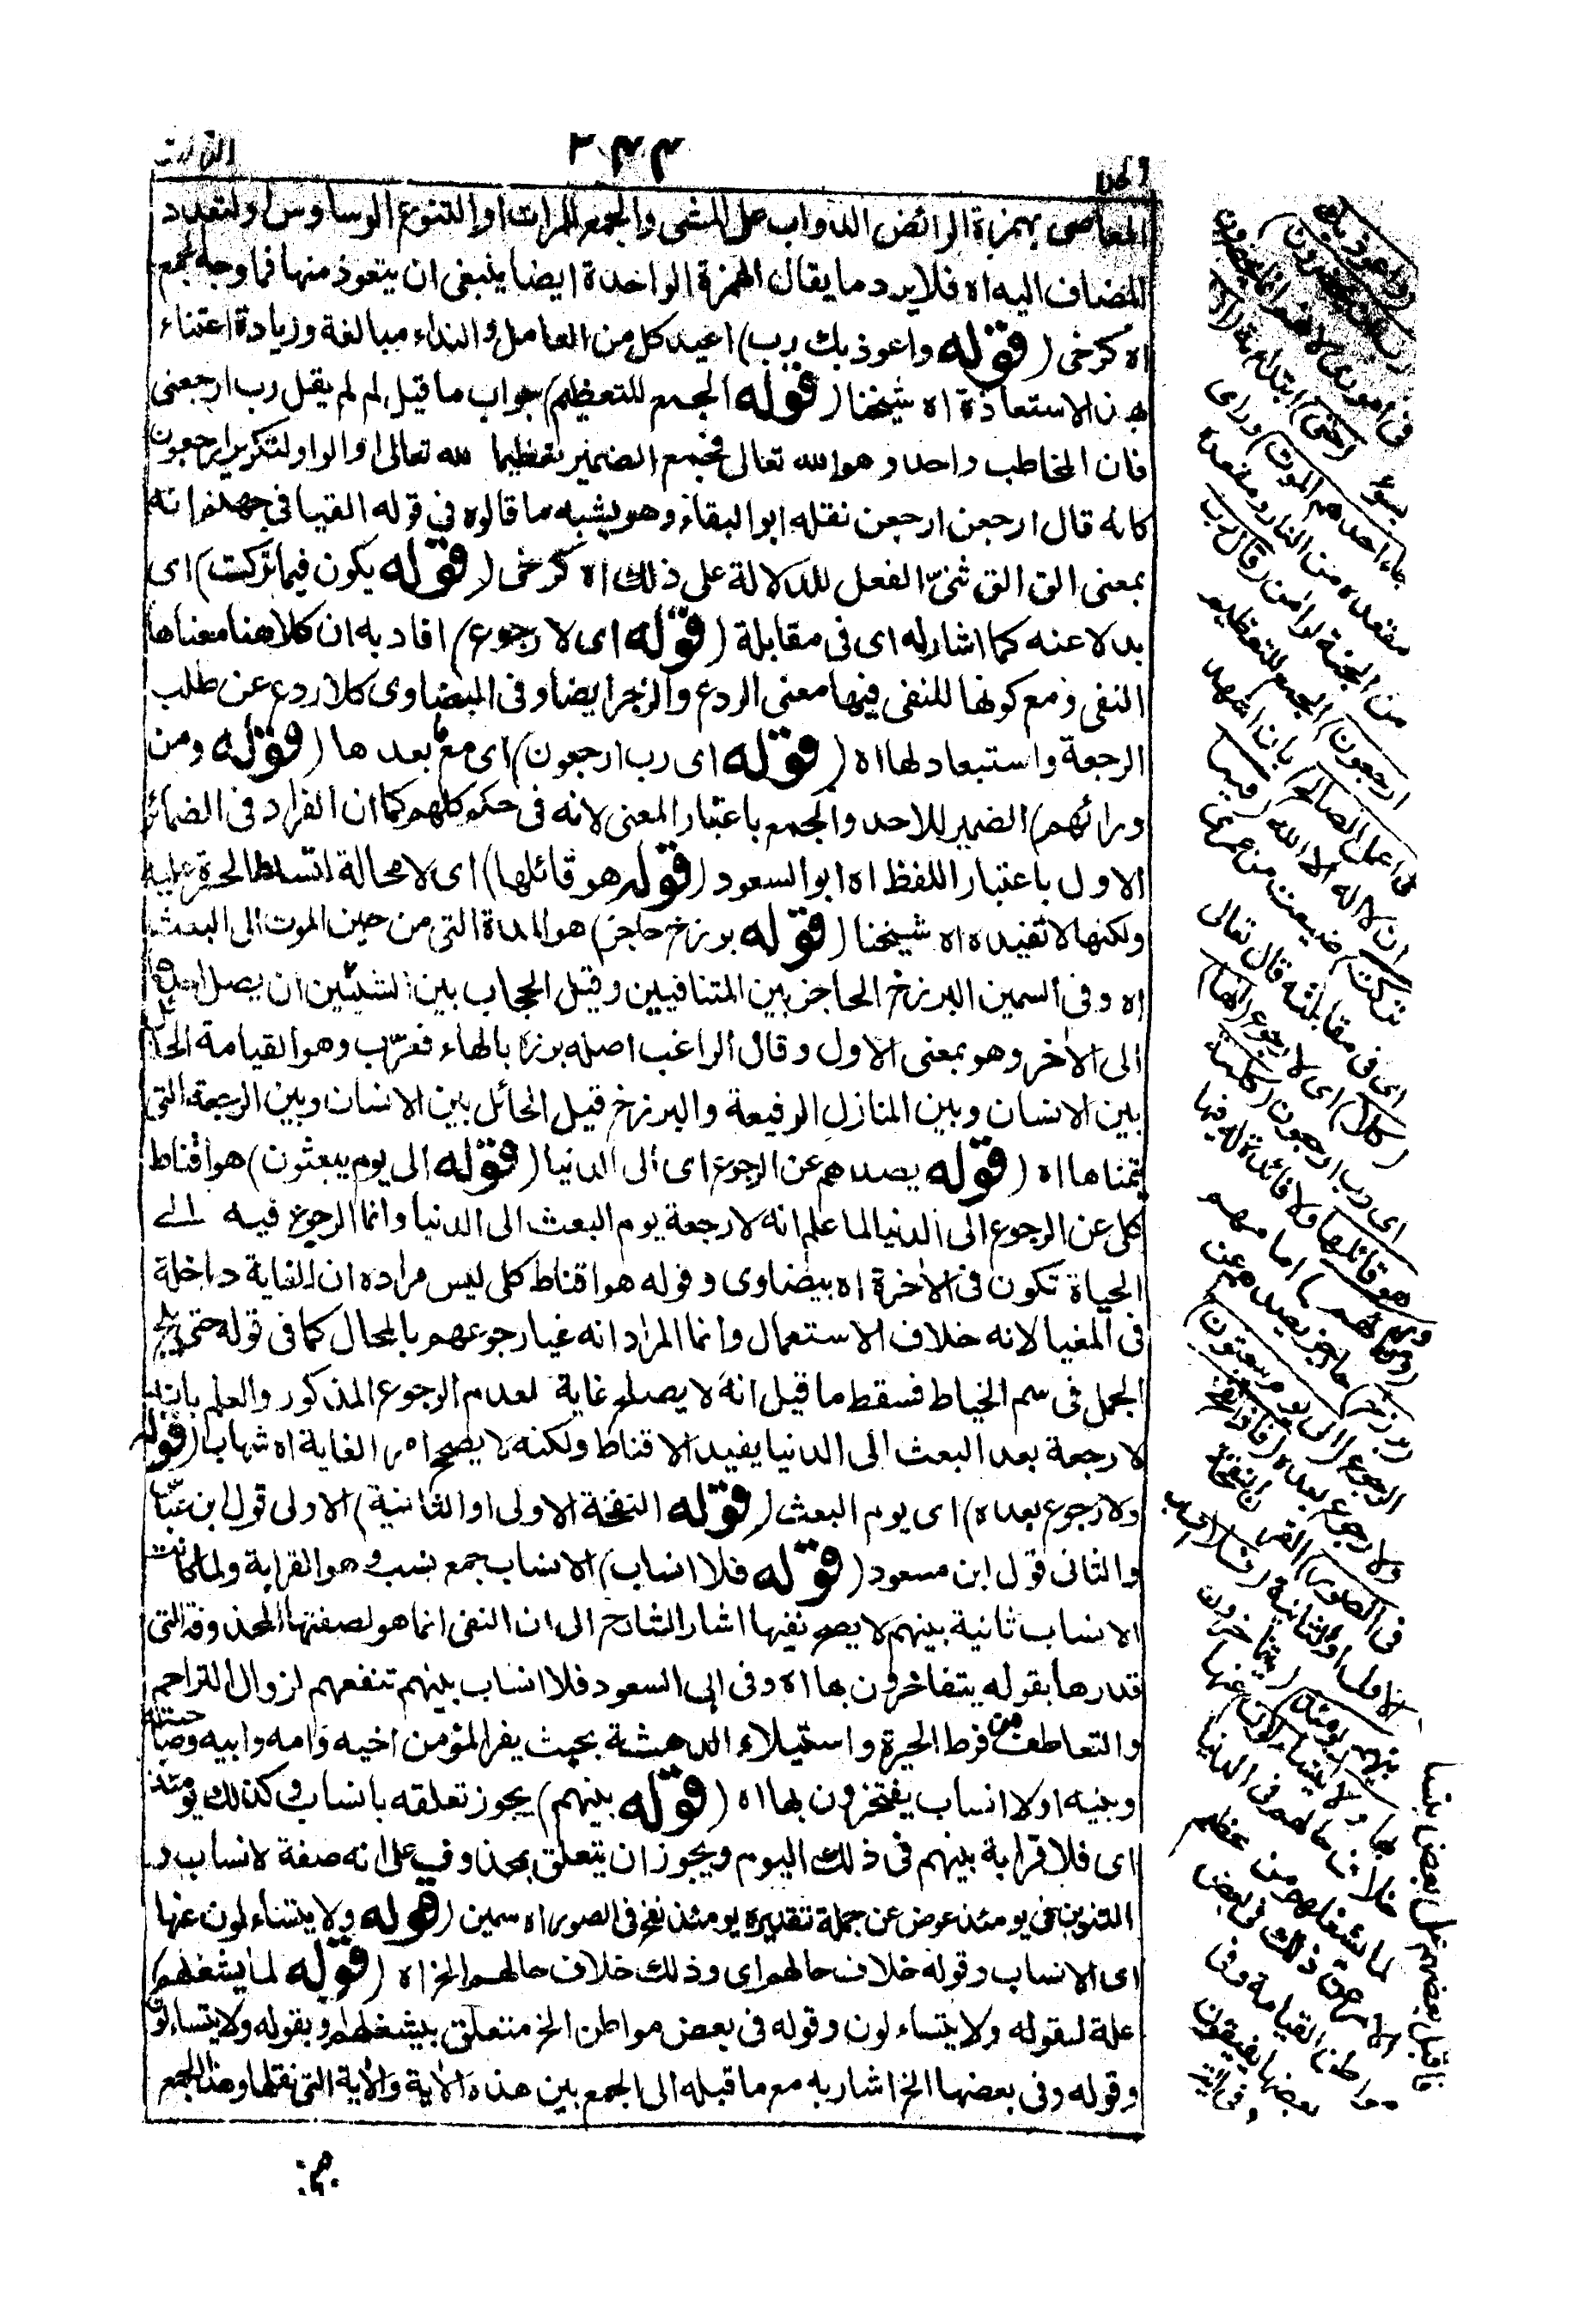 ٢٤٤
المعاصى بهمزة الرائض الدواب على المشى والجمع للمرات او لتنوع الوساوس او لتعدد
المضاف اليه اه فلا يرد ما يقال الهمزة الواحدة ايضا ينبغى ان يتعوذ منها فما وجه الجمع
اه كرخى (قوله واعوذ بك رب) اعيد كل من العامل والنداء مبالغة وزيادة اعتناء
بهذه الاستعاذة اه شيخنا (قوله الجمع للتعظيم) جواب ما قيل لم لم يقل رب ارجعنى
فان المخاطب واحد وهو الله تعالى فجمع الضمير تعظيما لله تعالى او الواو لتكرير ارجعون
كانه قال ارجعن ارجعن نقله ابو البقاء وهو يشبه ما قالوه فى قوله القيا فى جهنم انه
بمعنى الق الق ثنى الفعل للدلالة على ذلك اه كرخى (قوله يكون فيما تركت) اى
بدلا عنه كما اشار له اى فى مقابلة (قوله اى لا رجوع) افاد به ان كلا هنا معناها
النفى ومع كونها للنفى فيها معنى الردع والزجر ايضا وفى البيضاوى كلا ردع عن طلب
الرجعة واستبعاد لها اه (قوله اى رب ارجعون) اى مع ما بعدها (قوله ومن
ورائهم) الضمير للاحد والجمع باعتبار المعنى لانه فى حكم كلهم كما ان الافراد فى الضمائر
الاول باعتبار اللفظ اه ابو السعود (قوله هو قائلها) اى لا محالة لتسلط الحسرة عليه
ولكنها لا تفيده اه شيخنا (قوله برزخ حاجز) هو المدة التى من حين الموت الى البعث
اه وفى السمين البرزخ الحاجز بين المتنافيين وقيل الحجاب بين الشيئين ان يصل احدهما
الى الاخر وهو بمعنى الاول وقال الراغب اصله برزه بالهاء فعرّب وهو القيامة الحائل
بين الانسان وبين المنازل الرفيعة والبرزخ قيل الحائل بين الانسان وبين الرجعة التى
يتمناها اه (قوله يصدهم عن الرجوع اى الى الدنيا (قوله الى يوم يبعثون) هو اقناط
كلى عن الرجوع الى الدنيا لما علم انه لا رجعة يوم البعث الى الدنيا وانما الرجوع فيه الى
الحياة تكون فى الآخرة اه بيضاوى وقوله هو اقناط كلى ليس مراده ان الغاية داخلة
فى المغيا لانه خلاف الاستعمال وانما المراد انه غيا رجوعهم بالمحال كما فى قوله حتى يلج
الجمل فى سم الخياط فسقط ما قيل انه لا يصلح غاية لعدم الرجوع المذكور والعلم بانه
لا رجعة بعد البعث الى الدنيا يفيد الاقناط ولكنه لا يصحح امر الغاية اه شهاب (قوله
ولا رجوع بعده) اى يوم البعث (قوله النفخة الاولى او الثانية) الاولى قول ابن عباس
والثانى قول ابن مسعود (قوله فلا انساب) الانساب جمع نسب وهو القرابة ولما كانت
الانساب ثانية بينهم لا يصح نفيها اشار الشارح الى ان النفى انما هو لصفتها المحذوفة التى
قدرها بقوله يتفاخرون بها اه وفى ابى السعود فلا انساب بينهم تنفعهم لزوال التراحم
والتعاطف من فرط الحيرة واستيلاء الدهشة بحيث يفر المؤمن اخيه وامه وابيه وصاحبته
وبنيه او لا انساب يفتخرون بها اه (قوله بينهم) يجوز تعلقه بانساب وكذلك يومئذ
اى فلا قرابة بينهم فى ذلك اليوم ويجوز ان يتعلق بمحذوف على انه صفة لانساب و
التنوين فى يومئذ عوض عن جملة تقديره يومئذ نفخ فى الصور اه سمين (قوله ولا يتساءلون عنها
اى الانساب وقوله خلاف حالهم اى وذلك خلاف حالهم الخ اه (قوله لما يشغلهم)
علة لقوله ولا يتساءلون وقوله فى بعض مواطن الخ متعلق بيشغلهم وبقوله ولا يتساءلون
وقوله وفى بعضها الخ اشار به مع ما قبله الى الجمع بين هذه الآية والآية التى نقلها وهذا الجمع
فى امورى لانهم
(حتى) ابتدائية (اذا
جاء احدهم الموت) وراى
مقعده من النار ومقعده
من الجنة لو امن (قال رب
ارجعون) الجمع للتعظيم
ان لا اله الا الله (فيما
تركت) ضيعت من عمرى
اى فى مقابلته قال تعالى
(كلا) اى لا رجوع (انها)
اى رب ارجعون (كلمة
هو قائلها) ولا فائدة له فيها
(ومن ورائهم) امامهم
(برزخ) حاجز يصدهم عن
الرجوع (الى يوم يبعثون)
ولا رجوع بعده (فاذا نفخ
فى الصور) القرن النفخة
الاولى او الثانية (فلا انساب
بينهم يومئذ) يتفاخرون
بها (ولا يتساءلون) عنها
خلاف حالهم فى الدنيا
لما يشغلهم من عظم
الامر عن ذلك فى بعض
مواطن القيامة وفى
بعضها يفيقون
فاقبل بعضهم على بعض يتسا